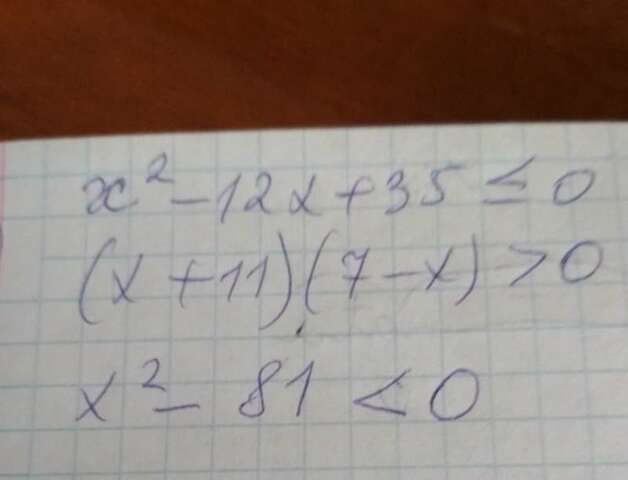 x² - 12x + 35 ≤ 0
(x + 11)(7 - x) > 0
x² - 81 < 0